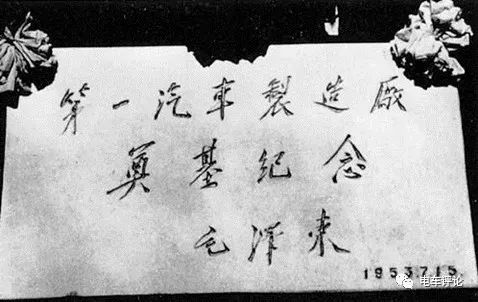 第一汽車製造廠
奠基纪念
毛泽東
1953715
电车评论